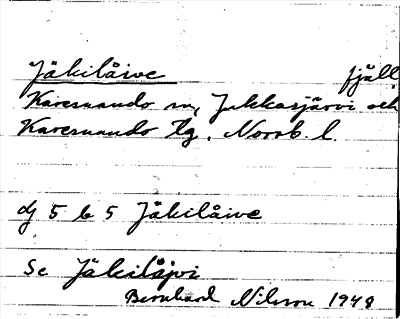 Jäkilåive fjäll
Karesuando sn, Jukkasjärvi och
Karesuando tg. Norrb. l.
dj 5 b 5 Jäkilåive
Se Jäkilåjvi
Bernhard Nilsson 1948